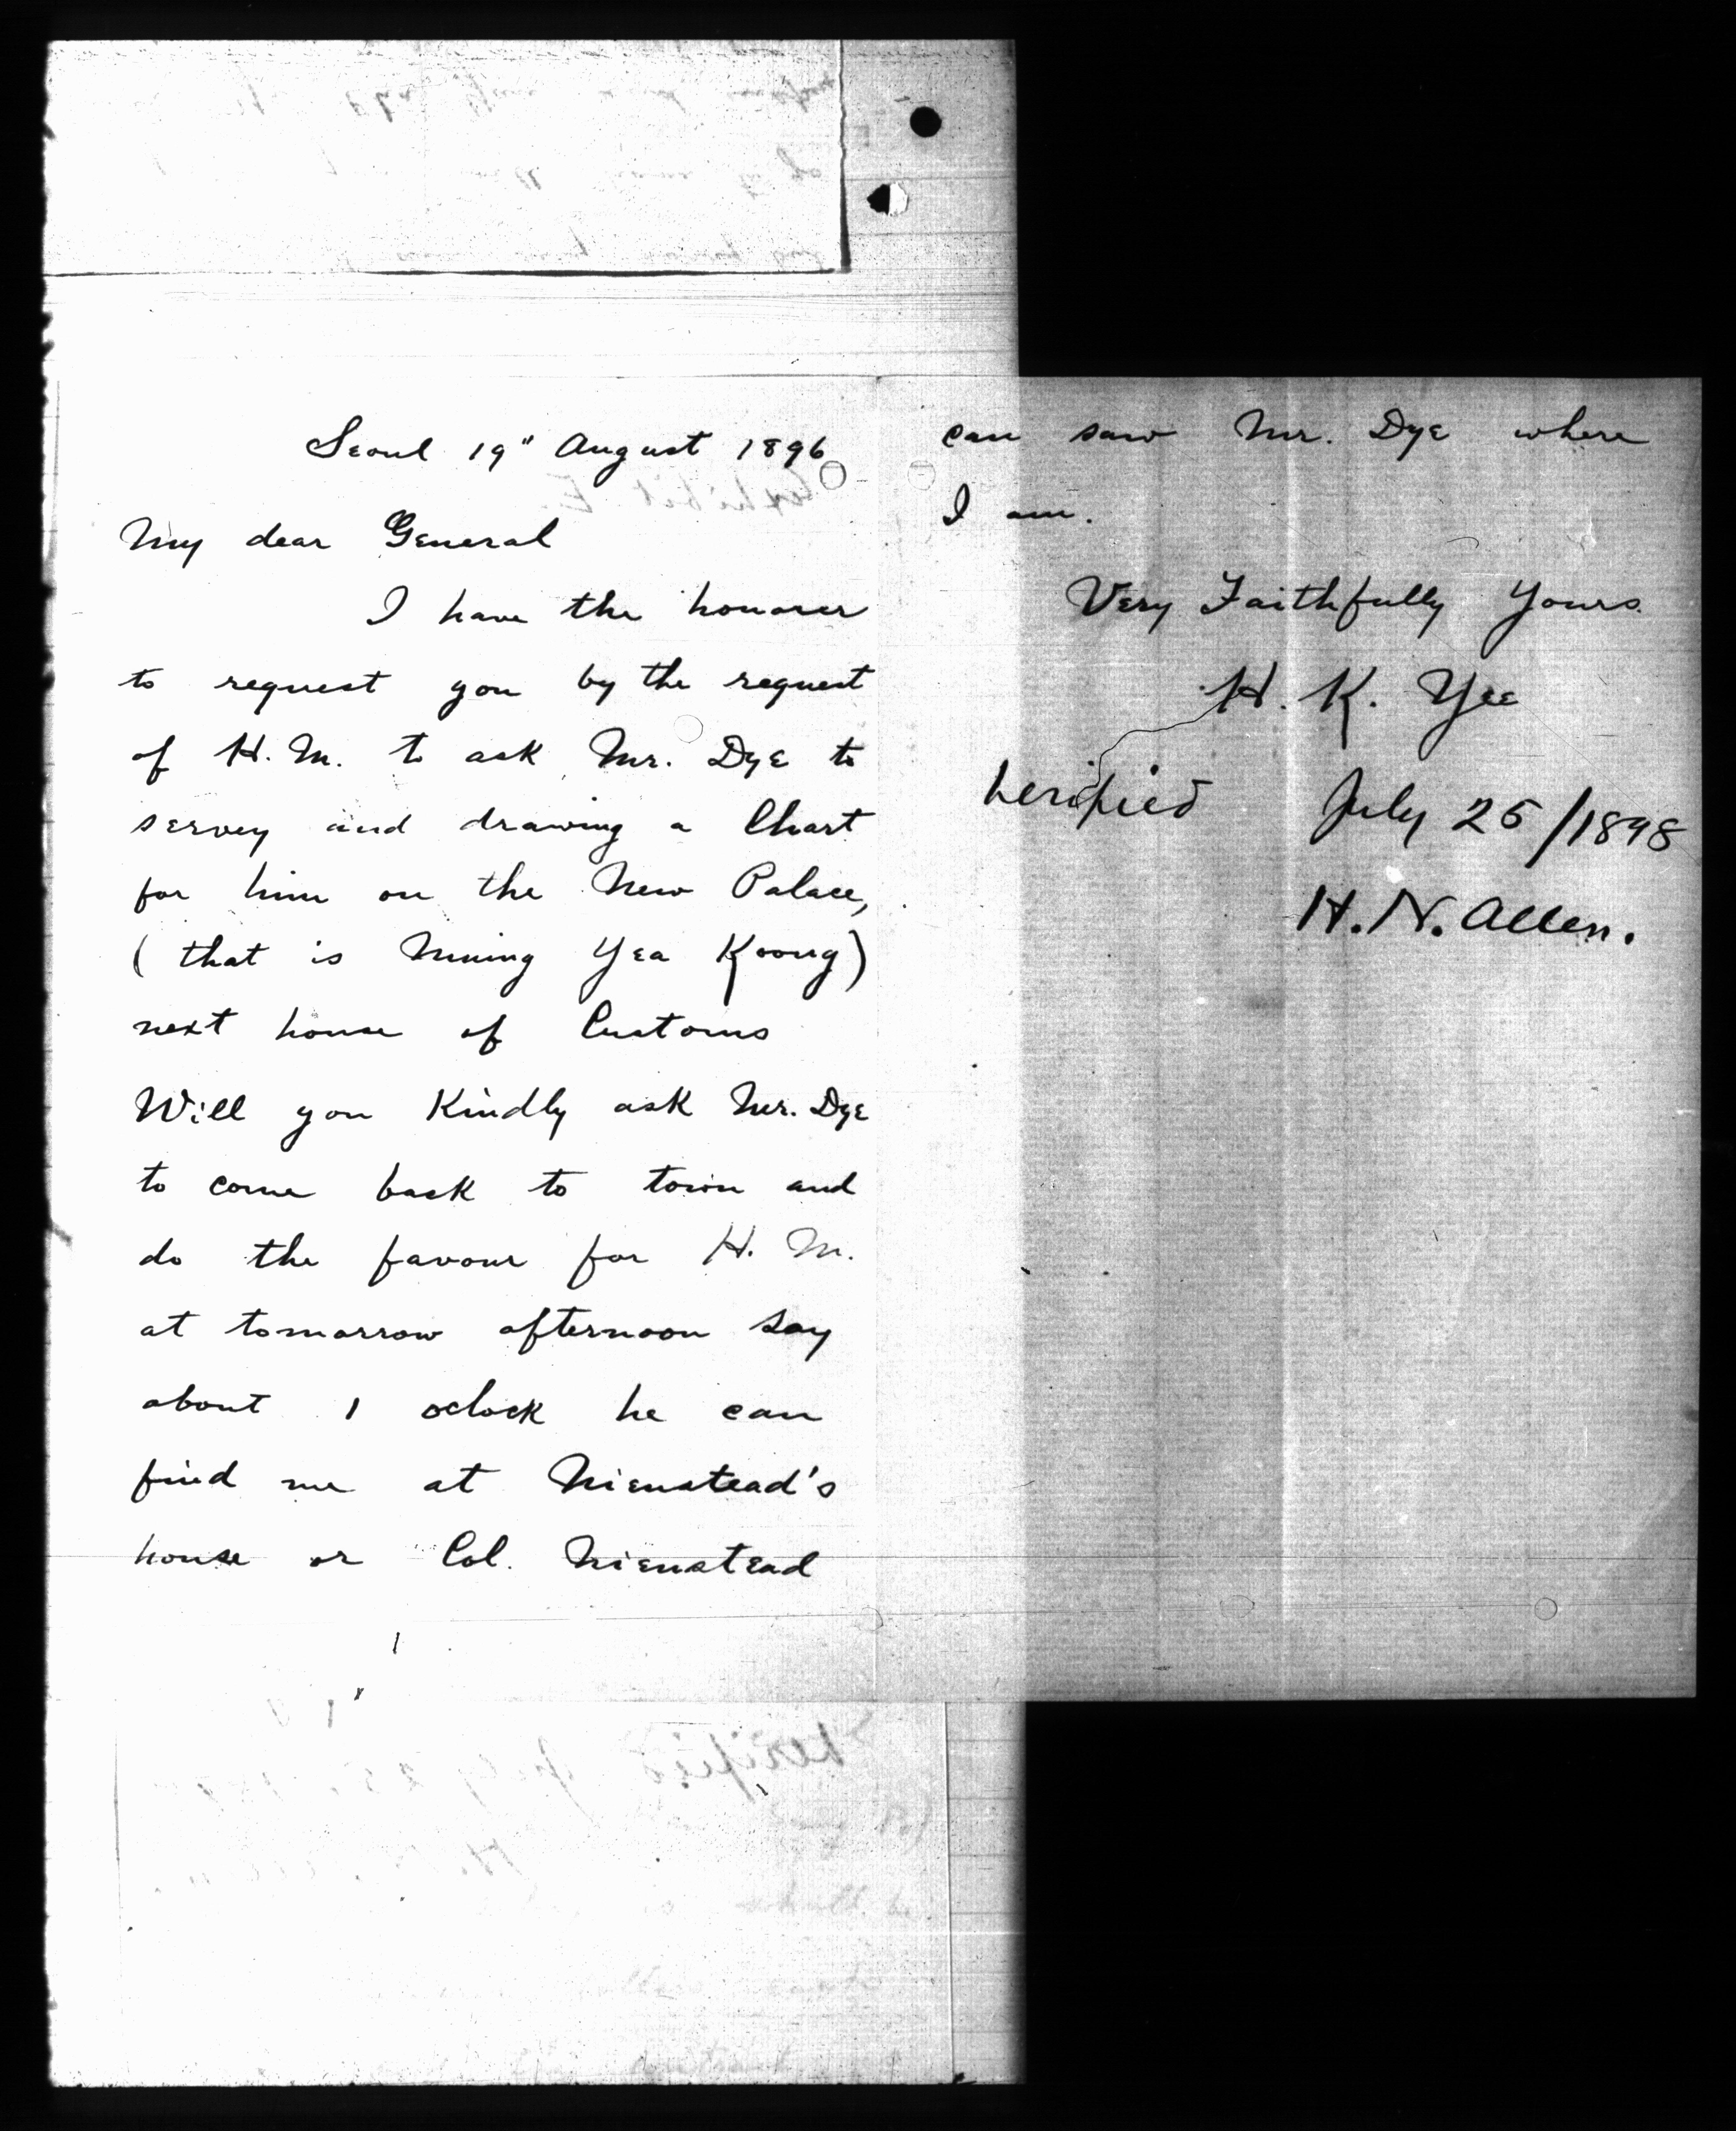 Seoul 19" August 1896
My dear General
I have the honorer
to request you by the request
of H. M. to ask Mr. Dye to
servey and drawing a Chart
for him on the New Palace,
( that is Mining Yea Koong)
next house of Customs
Will you Kindly ask Mr. Dye
to come back to town and
do the favour for H. M.
at tomorrow afternoon say
about 1 oclock he can
find me at Nienstead's
house or Col. Nienstead
can saw Mr. Dye where
I am.
Very Faithfully Yours
H. K. Yee
Verified July 25/1898
H. N. Allen.
Exhibit E.